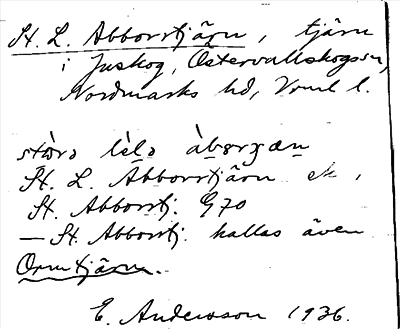 St. L. Abborrtjärn, tjärn
i Juskog, Östervallskogssn,
Nordmarks hd, Vrml l.
stòrə lèlə àbərçæn
St. L. Abborrtjärn ek,
St. Abborrtj. G70
— St. Abborrtj. kallas även
Ormtjärn.
E. Andersson 1936.